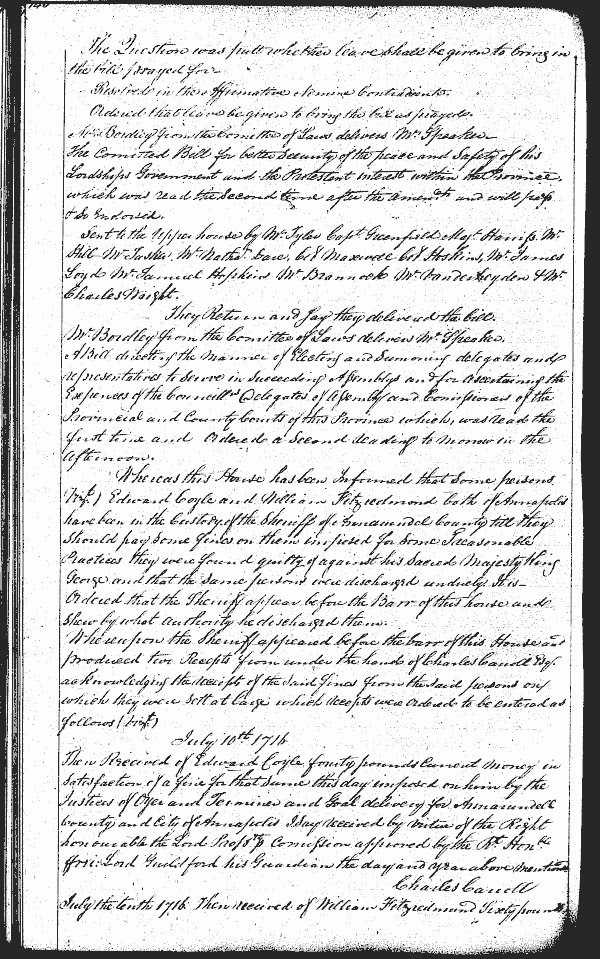 The Question was putt whether leave shall be given to bring in
the bill prayed for
Resolved in the affirmative Nemine Contradicente.
Ordered that leave be given to bring the bill as prayed.
Mr. Bordley from the Comittee of Laws delivers Mr. Speaker
The Comitted Bill for better Security of the peace and Safety of his
Lordships Government and the Protestant interest within the Province,
which was read the Second time after the amendts and will pass
& so Endorsed.
Sent to the Upper house by Mr. Tyler Capt. Greenfield Majr. Mr.
Hill Mr. Tasker, Mr. Nathl. Dare, Col Maxwell Col Hoskins, Mr. James
Loyd Mr. Samuel Hopkins Mr. Brannock Mr. Vanderheyden & Mr.
Charles Wright.
They Return and say they delivered the bill.
Mr. Bordley from the Comittee of Laws delivers Mr. Speaker
A Bill directing the Manner of Electing and Sumoning delegates and
representatives to Serve in Succeeding Assemblys and for ascertaining the
Expences of the Councillrs Delegates of Assembly and Comissioners of the
Provincial and County Courts of this Province which was Read the
first time and Ordered a Second reading to morrow in the
afternoon.
Whereas this House has been Informed that Some persons
(vizt.) Edward Coyle and William Fitzredmond both of Annapolis
have been in the Custody of the Sheriff of Annarundel County till they
Should pay Some fines on them imposed for Some Treasonable
Practices they were found guilty of against his Sacred Majesty King
George and that the Same persons were discharged unduely. It is
Ordered that the Sheriff appear before the Barr of this house and
Shew by what authority he discharged them.
Whereupon the Sheriff appeared before the barr of this House and
produced two Receipts from under the hand of Charles Carroll Esqr.
acknowledging the receipt of the Said fines from the Said persons on
which they were Sett at large which receipts were Ordered to be entered as
follows (vizt.)
July 10th 1716
Then Received of Edward Coyle fourty pounds Current Money in
Satisfaction of a fine for that Same this day imposed on him by the
Justices of Oyer and Terminer and Goal delivery for Annarundell
County and City of Annapolis I say received by virtue of the Right
honourable the Lord Comission approved by the Rt. Honble
Lord Guilford his Guardian the day and year above mentioned
Charles Carroll
July the tenth 1716 Then received of William Fitzredmund Sixty pounds